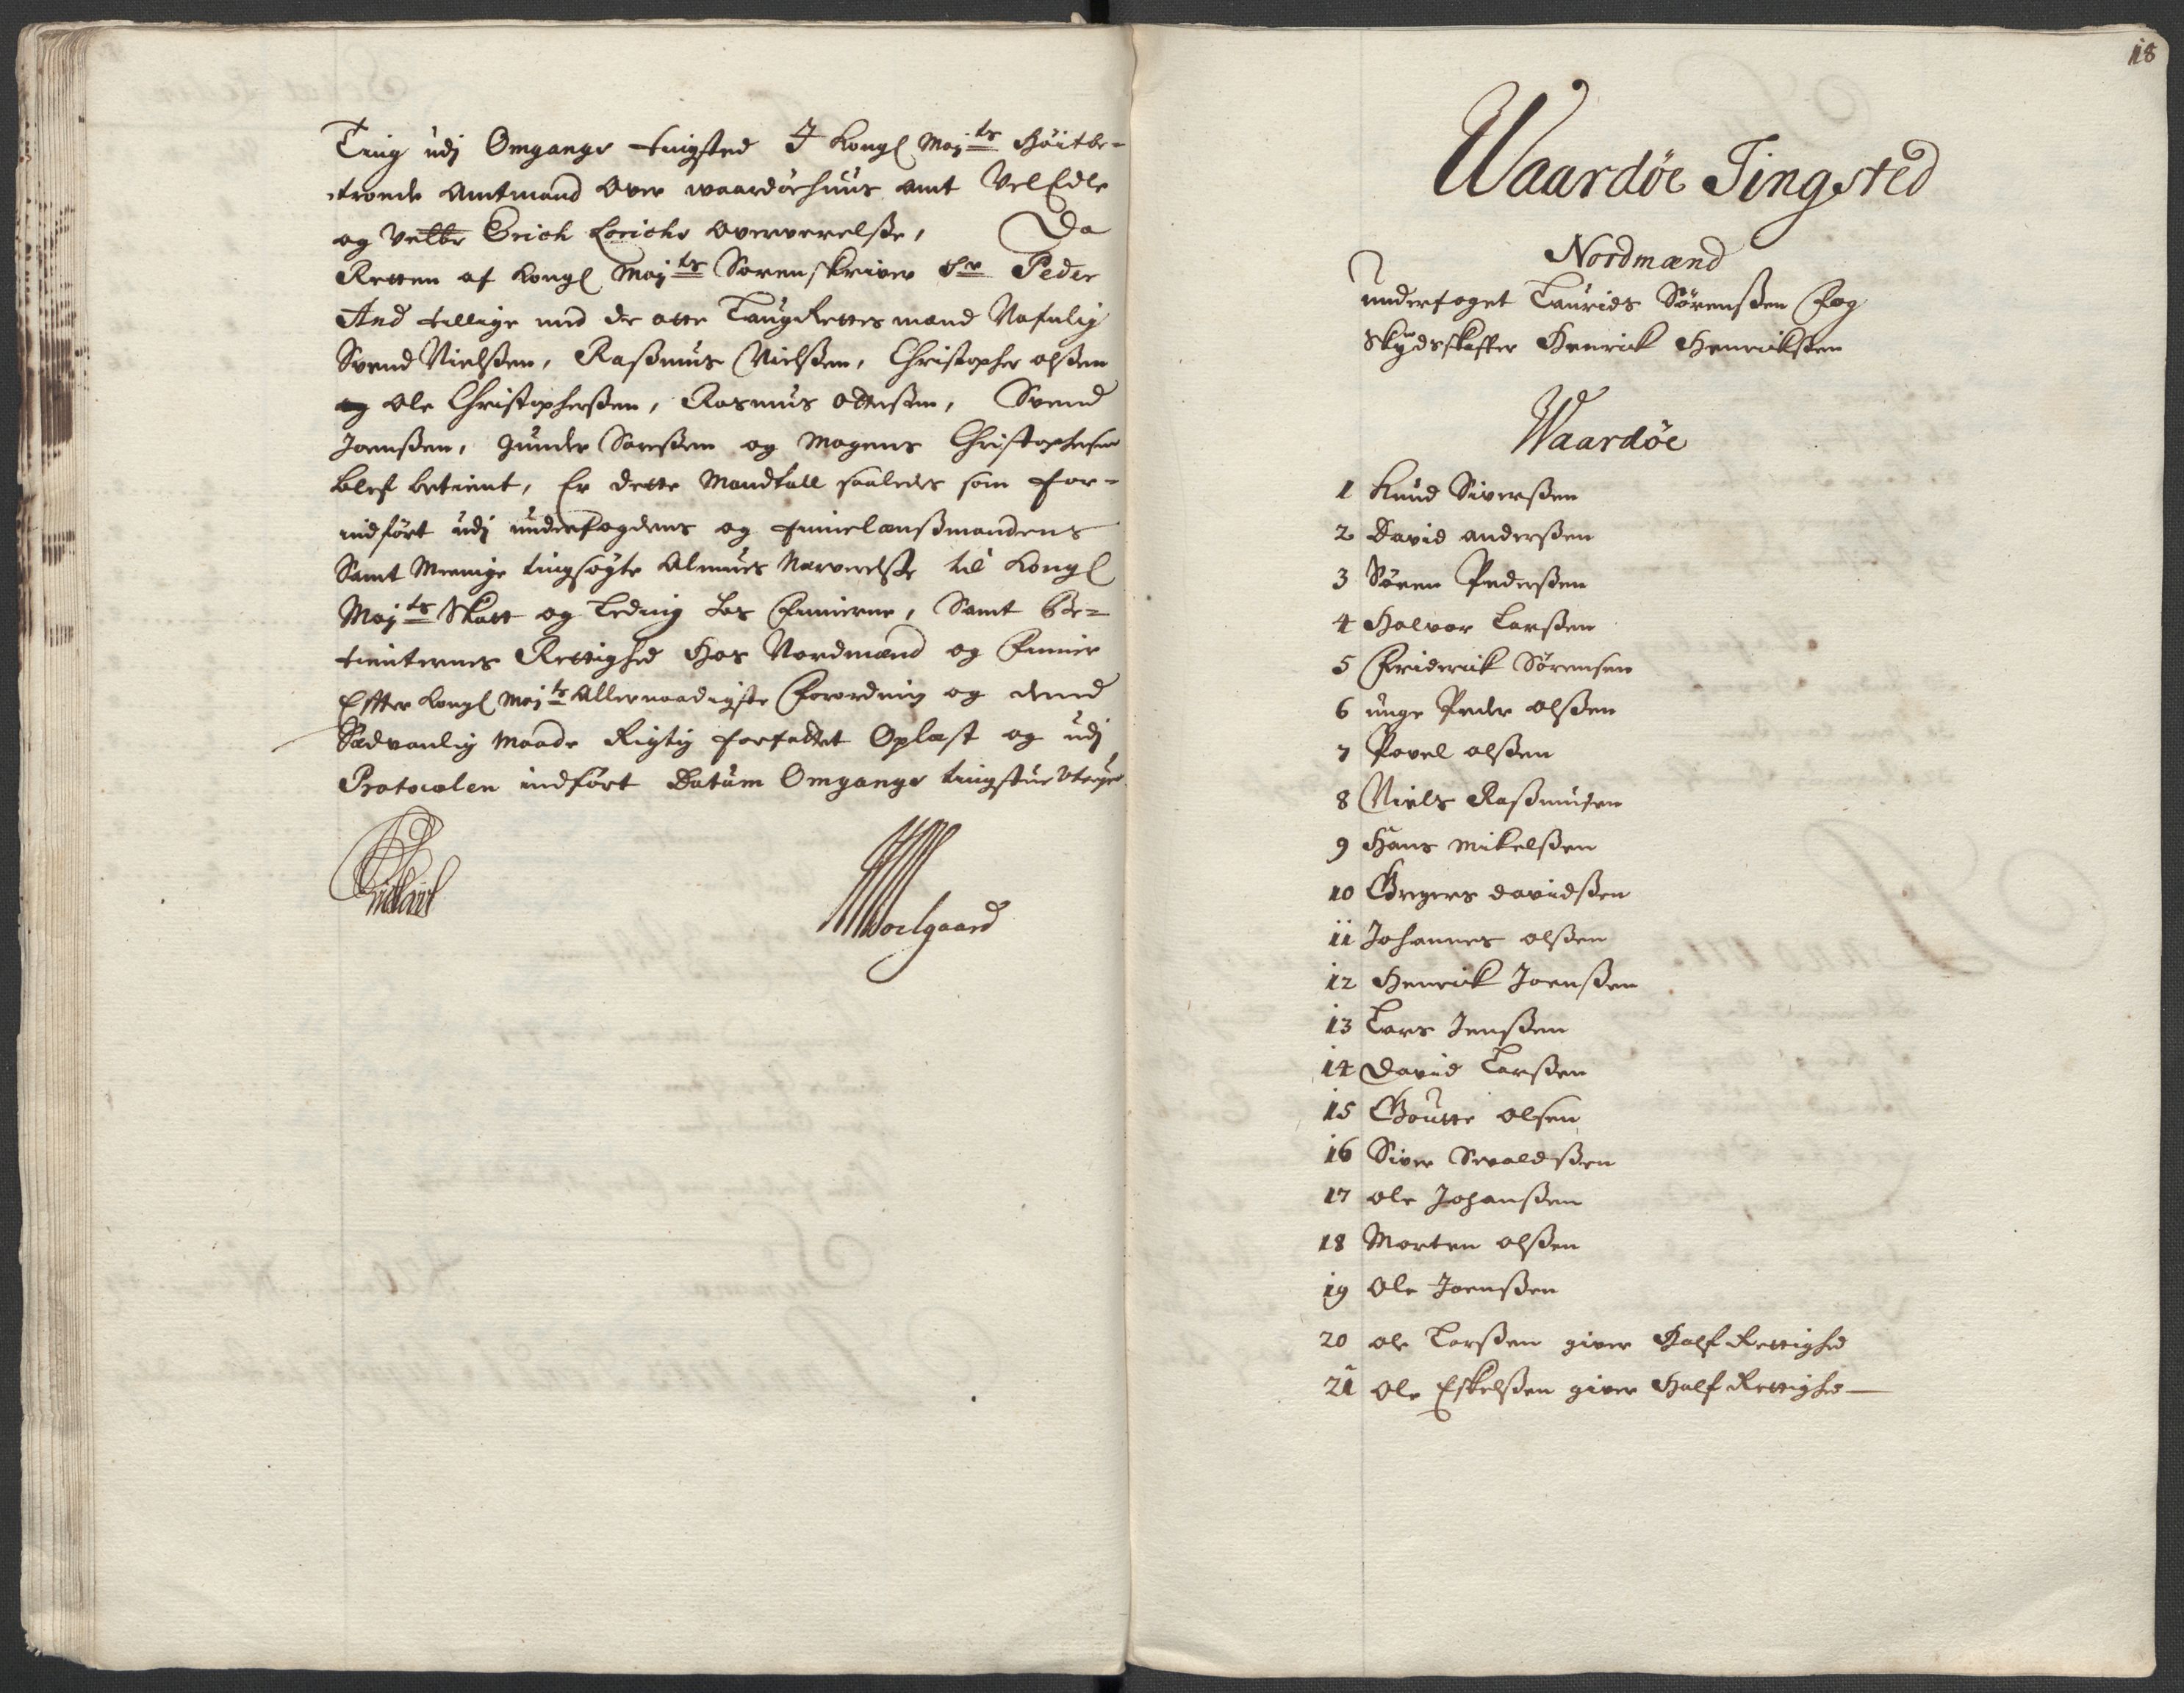 Ting udj Omgangs tingsted J Kongl May:ts Höitbe-
troende Amtmand Over waardöehuus amt VelEdle
og Velbr Erich Lorichs Oververelsse, Da
Retten af Kongl May:ts Sorenskriver Sr Peder
And tillige med de otte LaugRettes mænd Nafnlig
Svend Nielssen, Rassmus Nielssen, Christopher olssen
og Ole Christopherssen, Rasmus Ottessen, Svend
Joenssen, Gunder Sarssen og Mogens Christophersen
blef betient, Er dette Mandtall saaledes som for-
indfört udj underfogdens og finnelænssmandens
Samt Menige tingsögte Almues Nærverelsse til Kongl
May:ts Skatt og Leding hos Finnerne, Samt Be-
tienternes Rettighed Hos Nordmænd og Finner
Effter Kongl May:ts Allernaadigste Forordning og dend
Sædvanlig Maade Rigtig forfattet Oplæst og udj
Protocolen indfört Datum Omgangs tingstue
Soelgaard
18
Waardöe Tingsted
Nordmænd
underfoget Laurids Sörenssen Fog
Skydsskaffer Henrick Henrickssen
Waardöe
1 Knud Siverssen
2 David anderssen
3 Sören Pederssen
4 Halvor Larssen
5 Friderick Sörensen
6 unge Peder olssen
7 Povel olssen
8 Niels Rassmusen
9 Hans Mikelssen
10 Gregers davidssen
11 Johannes olssen
12 Henrick Joenssen
13 Lars Jenssen
14 David Larssen
15 Goutte olsen
16 Siver Sevaldssen
17 ole Johanssen
18 Morten olssen
19 Ole Joenssen
20 ole Larssen giver Half Rettighed
21 Ole Eskelssen giver Half Rettighed